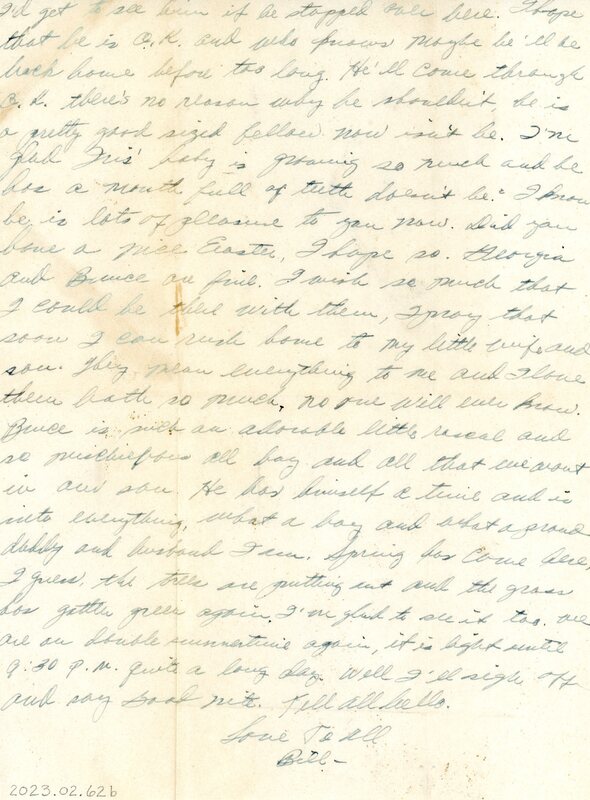 I'd get to see him if he stopped over here. I hope
that he is O.K. and who knows maybe he'll be
back home before too long. He'll come through
O.K. there's no reason why he shouldn't. He is
a pretty good sized fellow now isn't he. I'm
glad Iris' baby is growing so much and he
has a mouth full of teeth doesn't he? I know
he is lots of pleasure to you now. Did you
have a nice Easter, I hope so. Georgia
and Bruce are fine. I wish so much that
I could be there with them, I pray that
soon I can rush home to my little wife and
son. They mean everything to me and I love
them both so much, no one will ever know.
Bruce is such an adorable little rascal and
so mischiefous all boy and all that we want
in our son. He has himself a time and is
into everything, what a boy and what a proud
daddy and husband I am. Spring has come here,
I guess, the trees are putting out and the grass
has gotten green again. I'm glad to see it too. We
are on double summertime again, it is light until
9:30 P.M. quite a long day. Well I'll sign off
and say Good nite. Tell all hello.
Love To All
Bill-
2023.02.62b